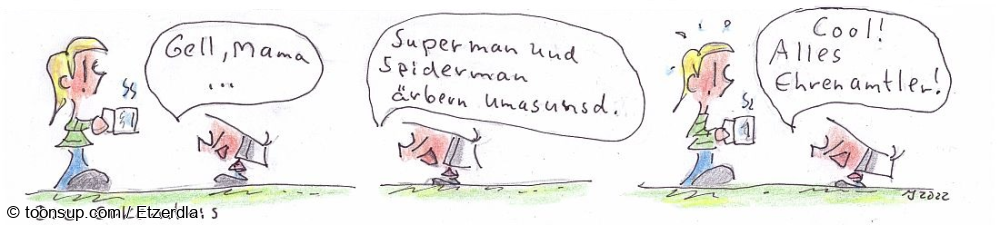 Gell, Mama
...
Superman und
Spiderman
ärbern umasunsd.
Cool!
Alles
Ehrenamtler!
© toonsup.com/ Etzerdla